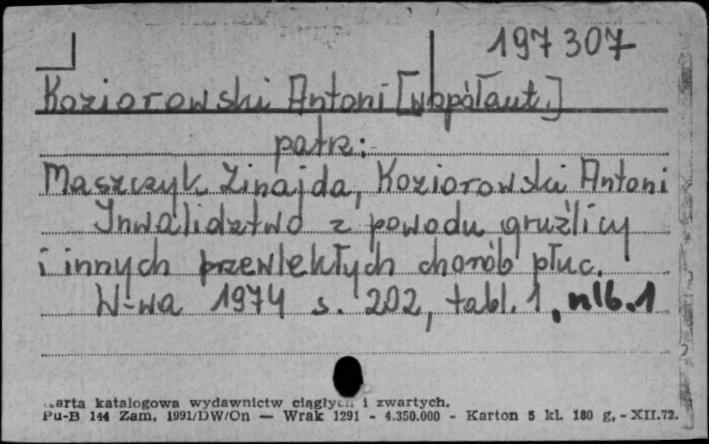 197307
Koziorowski Antoni [współaut.]
patrz:
Maszczyk Zinajda, Koziorowski Antoni
Inwalidztwo z powodu gruźlicy
i innych przewlekłych chorób płuc.
W-wa 1974 s. 202, tabl. 1, nlb. 1
karta katalogowa wydawnictw ciągłych i zwartych.
Pu-B 144 Zam. 1991/DW/On — Wrak 1291 - 4.350.000 - Karton 5 kl. 180 g. - XII.72.